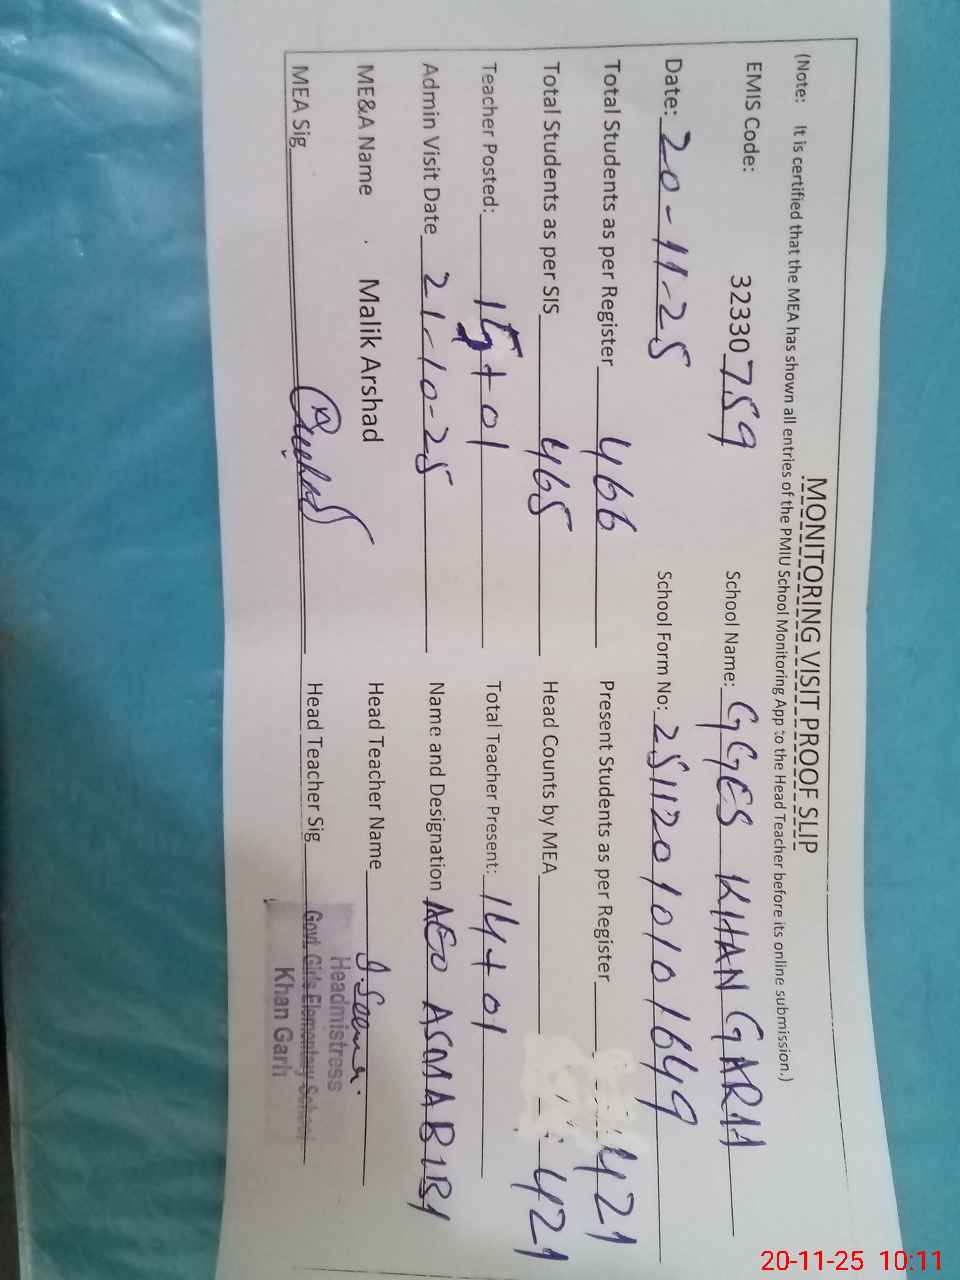 MONITORING VISIT PROOF SLIP
(Note: It is certified that the MEA has shown all entries of the PMIU School Monitoring App to the Head Teacher before its online submission.)
EMIS Code: 32330759 School Name: GGES KHAN GARH
Date: 20-11-25 School Form No: 2511201010101649
Total Students as per Register 466 Present Students as per Register 421
Total Students as per SIS 465 Head Counts by MEA 421
Teacher Posted: 15+01 Total Teacher Present: 14+01
Admin Visit Date 21-10-25 Name and Designation AEO ASMA BIBI
ME&A Name Malik Arshad Head Teacher Name
MEA Sig Arshad Head Teacher Sig
Headmistress
Govt Girls Elementary School
Khan Garh
20-11-25 10:11